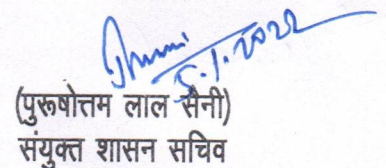 5.1.2022
(पुरूषोत्तम लाल सैनी)
संयुक्त शासन सचिव